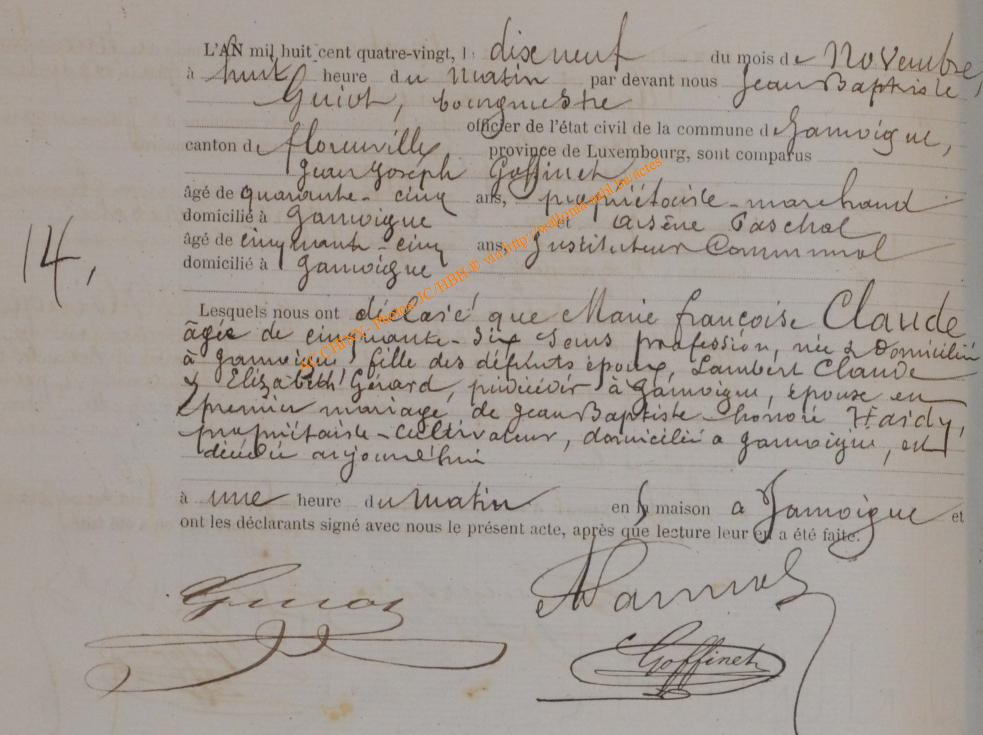 L'AN mil huit cent quatre-vingt, l dix neuf du mois de Novembre,
à huit heure du matin par devant nous Jean Baptiste
Guiot, bourgmestre
officier de l'état civil de la commune de Jamoigne,
canton de florenville, province de Luxembourg, sont comparus
Jean Joseph Goffinet
âgé de quarante-cinq ans, propriétaire-marchand
domicilié à Jamoigne et Arsène
âgé de cinquante-cinq ans, Instituteur Communal
domicilié à Jamoigne
14,
Lesquels nous ont déclaré que Marie françoise Claude
âgée de cinquante-six sans profession, née & domiciliée
à Jamoigne, fille des défunts époux, Lambert Claude
& Elizabeth Gérard, à Jamoigne, épouse en
premier mariage de Jean Baptiste honoré Hardy,
propriétaire-cultivateur, domicilié à Jamoigne, est
décédée aujourd'hui
à une heure du matin en sa maison à Jamoigne et
ont les déclarants signé avec nous le présent acte, après que lecture leur en a été faite.
Guiot
Goffinet